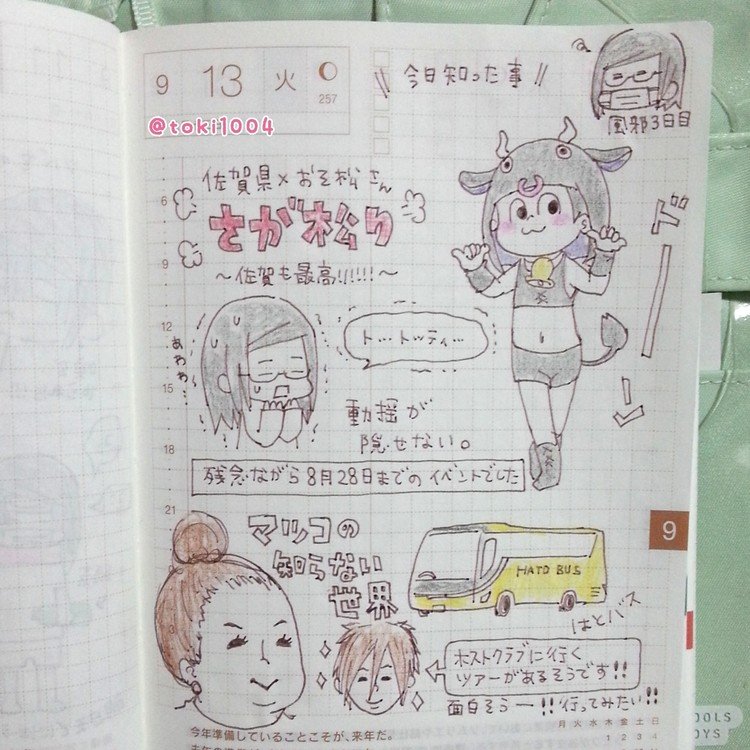 9 13 火
257
@toki1004
\\ 今日知った事 //
風邪3日目
佐賀県×おそ松さん
さが松り
〜佐賀も最高!!!!!!〜
ドーーン
ト…トッティ…
あわわ…
動揺が
隠せない。
残念ながら8月28日までのイベントでした
6
9
12
15
18
21
3
9
マツコの
知らない
世界
HATO BUS
はとバス
ホストクラブに行く
ツアーがあるそうです!!
面白そうー!!行ってみたい!!
今年準備していることこそが、来年だ。
月 火 水 木 金 土 日
1 2 3 4